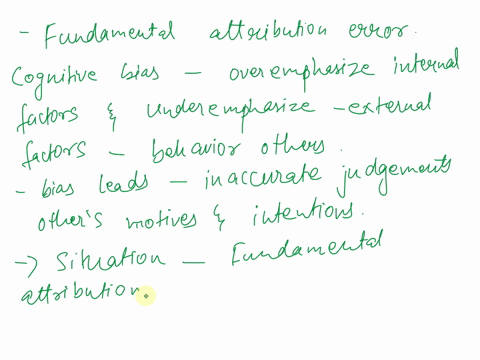 - Fundamental attribution error.
Cognitive bias - overemphasize internal
factors & underemphasize - external
factors - behavior others.
- bias leads - inaccurate judgements
other's motives & intentions.
-> Situation - Fundamental
attribution